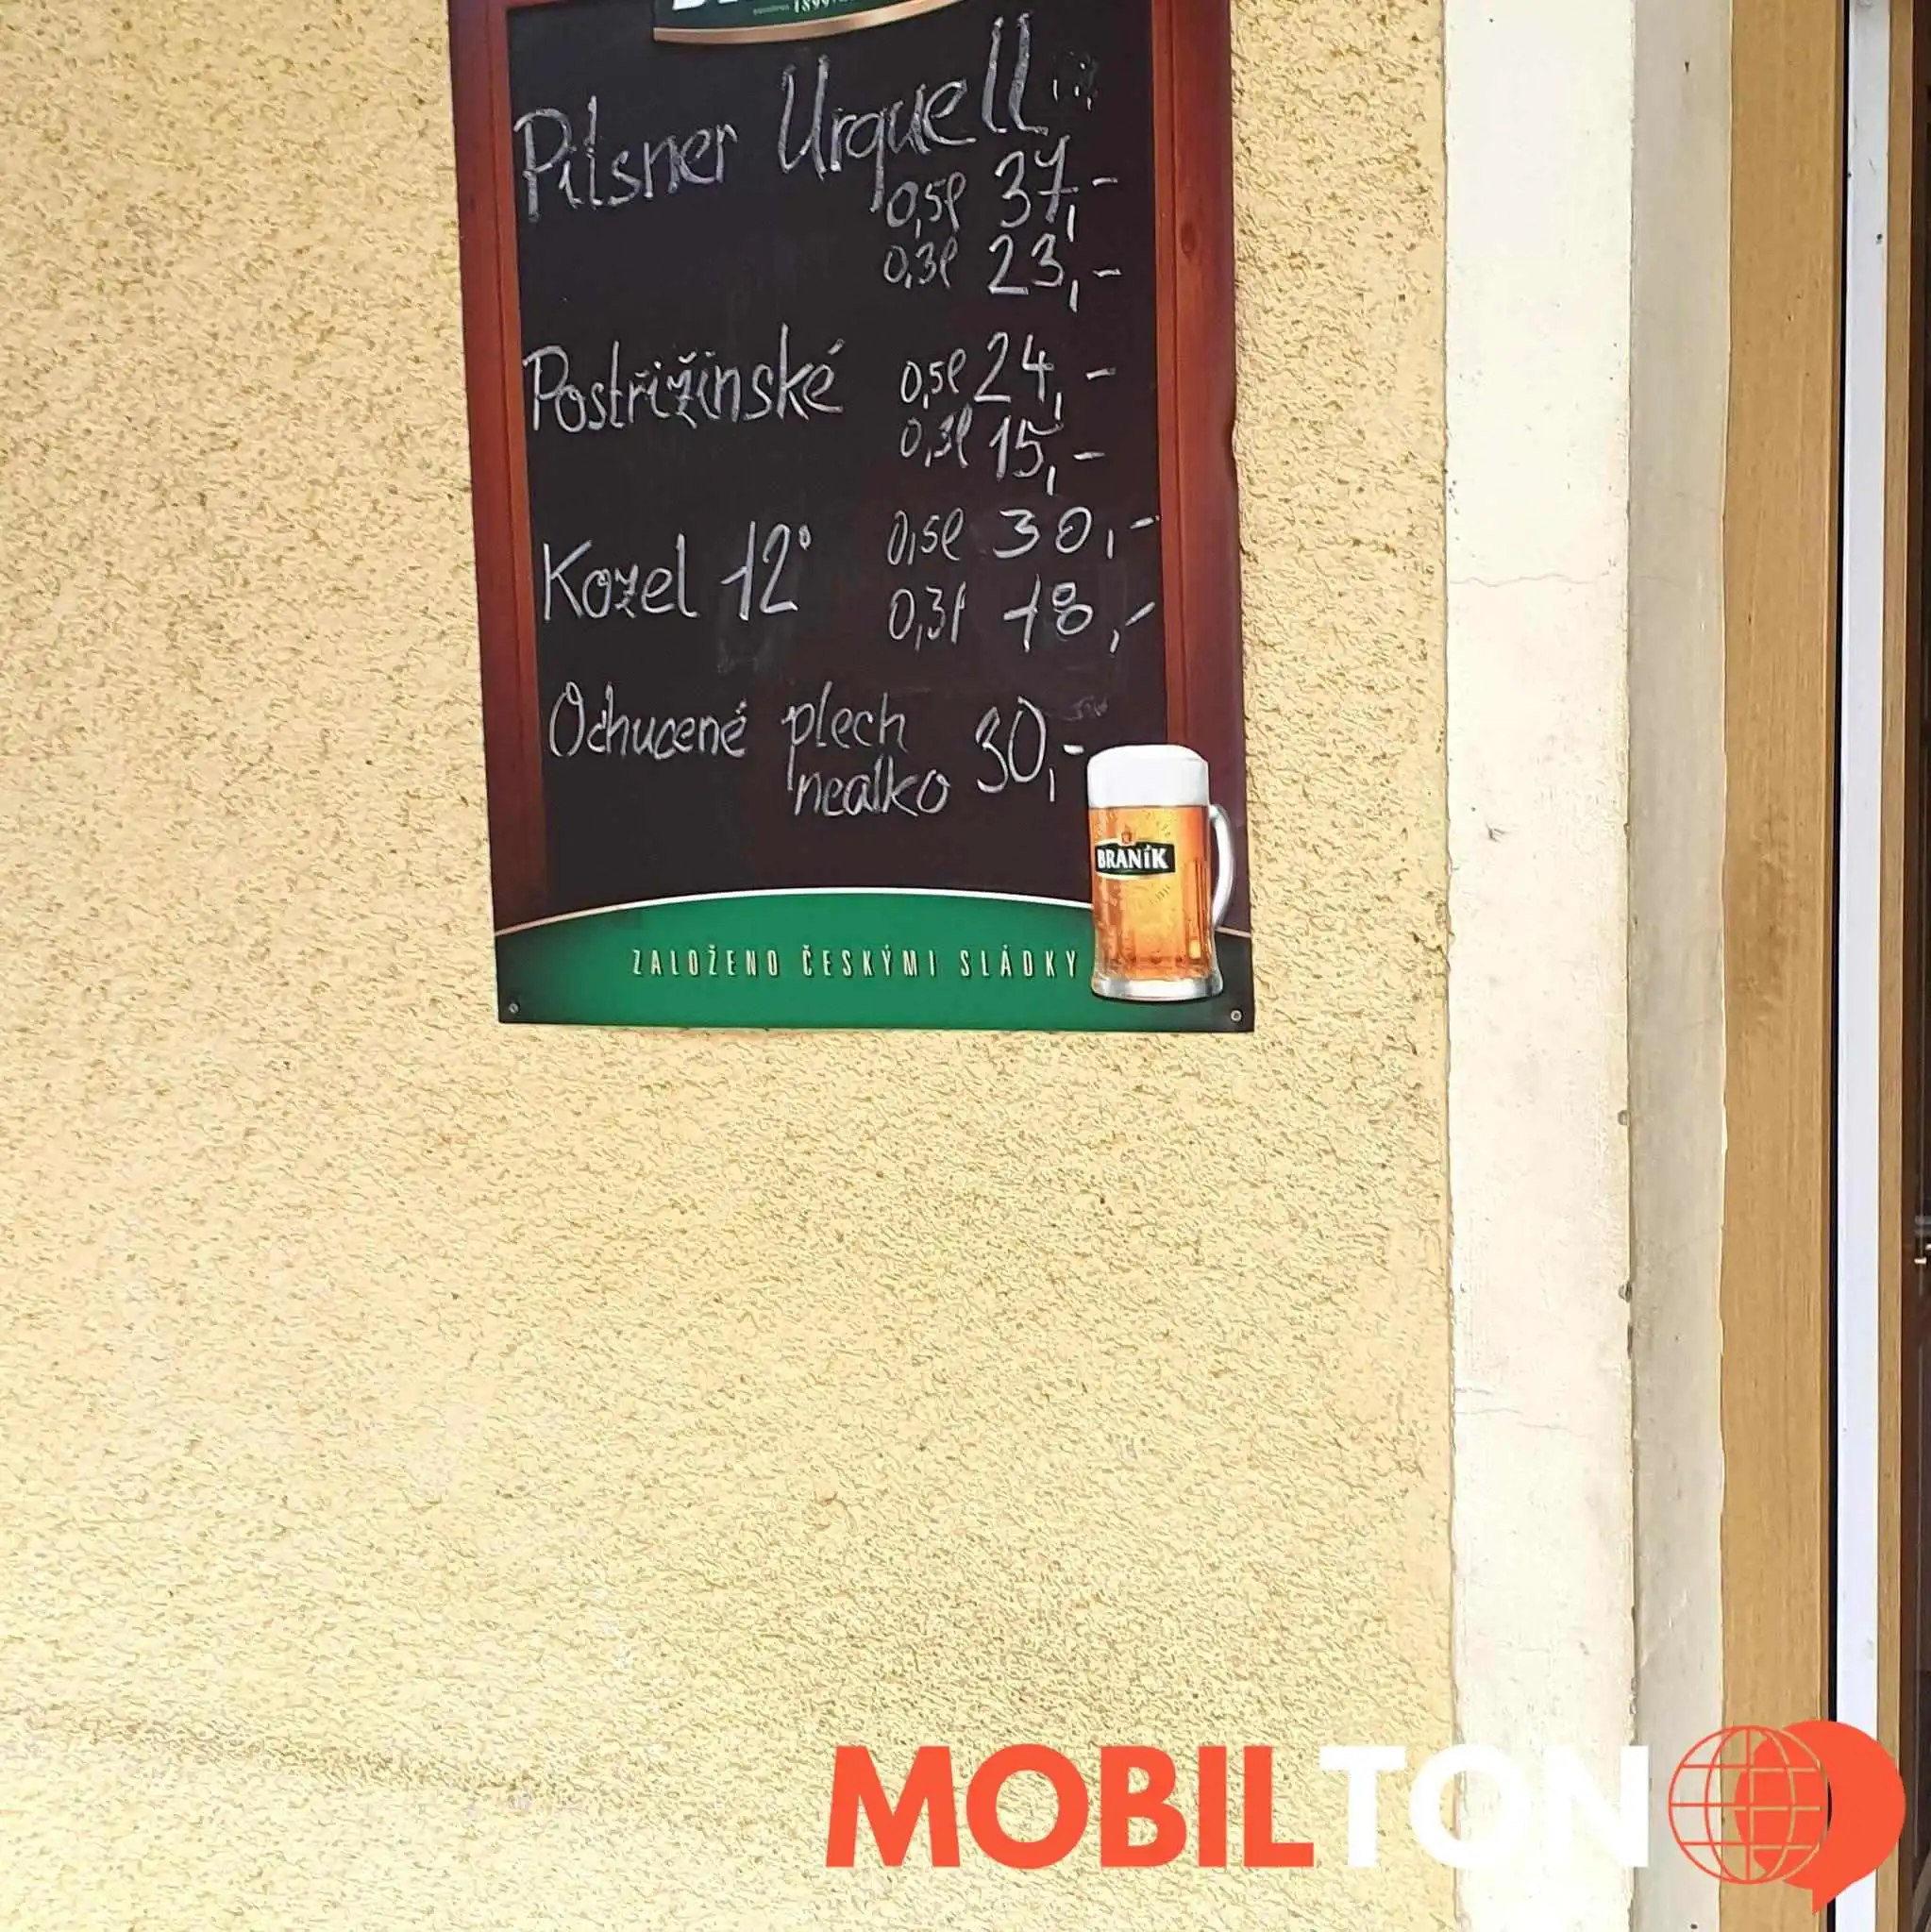 1899
Pilsner Urquell
0,5l 37,-
0,3l 23,-
Postřižinské 0,5l 24,-
0,3l 15,-
Kozel 12° 0,5l 30,-
0,3l 18,-
Ochucené plech 30,-
nealko
BRANÍK
ZALOŽENO ČESKÝMI SLÁDKY
MOBILTON